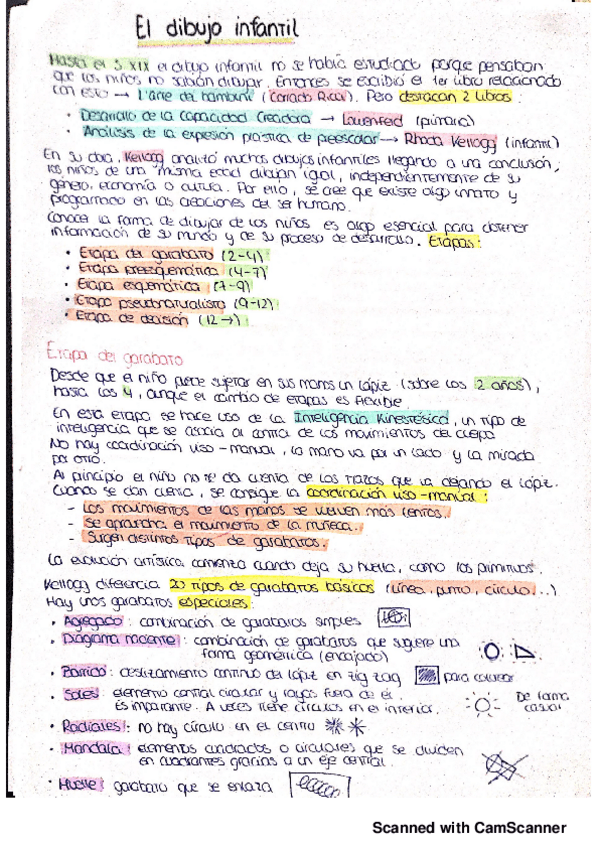 El dibujo infantil
Hasta el S. XIX el dibujo infantil no se había estudiado porque pensaban
que los niños no sabían dibujar. Entonces se escribió el 1er libro relacionado
con esto → L'arte dei bambini (Corrado Ricci). Pero destacan 2 libros:
• Desarrollo de la Capacidad Creadora → Lowenfeld (primaria)
• Análisis de la expresión plástica de preescolar → Rhoda Kellogg (infantil)
En su obra, Kellogg analizó muchos dibujos infantiles llegando a una conclusión;
los niños de una misma edad dibujan igual, independientemente de su
género, economía o cultura. Por ello, se cree que existe algo innato y
programado en las creaciones del ser humano.
Conocer la forma de dibujar de los niños es algo esencial para obtener
información de su mundo y de su proceso de desarrollo. Etapas:
• Etapa del garabato (2-4)
• Etapa preesquemática (4-7)
• Etapa esquemática (7-9)
• Etapa pseudonaturalista (9-12)
• Etapa de decisión (12→)
Etapa del garabato
Desde que el niño puede sujetar en sus manos un lápiz (sobre los 2 años),
hasta los 4, aunque el cambio de etapas es flexible.
En esta etapa se hace uso de la Inteligencia Kinestésica, un tipo de
inteligencia que se asocia al control de los movimientos del cuerpo
No hay coordinación viso-manual, la mano va por un lado y la mirada
por otro.
Al principio el niño no se da cuenta de los trazos que va dejando el lápiz.
Cuando se dan cuenta, se consigue la coordinación viso-manual:
- Los movimientos de las manos se vuelven más lentos.
- Se aprovecha el movimiento de la muñeca.
- Surgen distintos tipos de garabatos.
La evolución artística comienza cuando deja su huella, como los primitivos.
Kellogg diferencia 20 tipos de garabatos básicos (línea, punto, círculo...)
Hay unos garabatos especiales:
• Agregado: combinación de garabatos simples
• Diagrama naciente: combinación de garabatos que sugiere una
forma geométrica (encajado)
• Barrido: deslizamiento continuo del lápiz en zig zag para colorear
• Soles: elemento central circular y rayas fuera de él.
Es importante. A veces tiene círculos en el interior. De forma
casual
• Radiales: no hay círculo en el centro
• Mandala: elementos cuadrados o circulares que se dividen
en cuadrantes gracias a un eje central.
• Muelle: garabato que se enlaza
Scanned with CamScanner